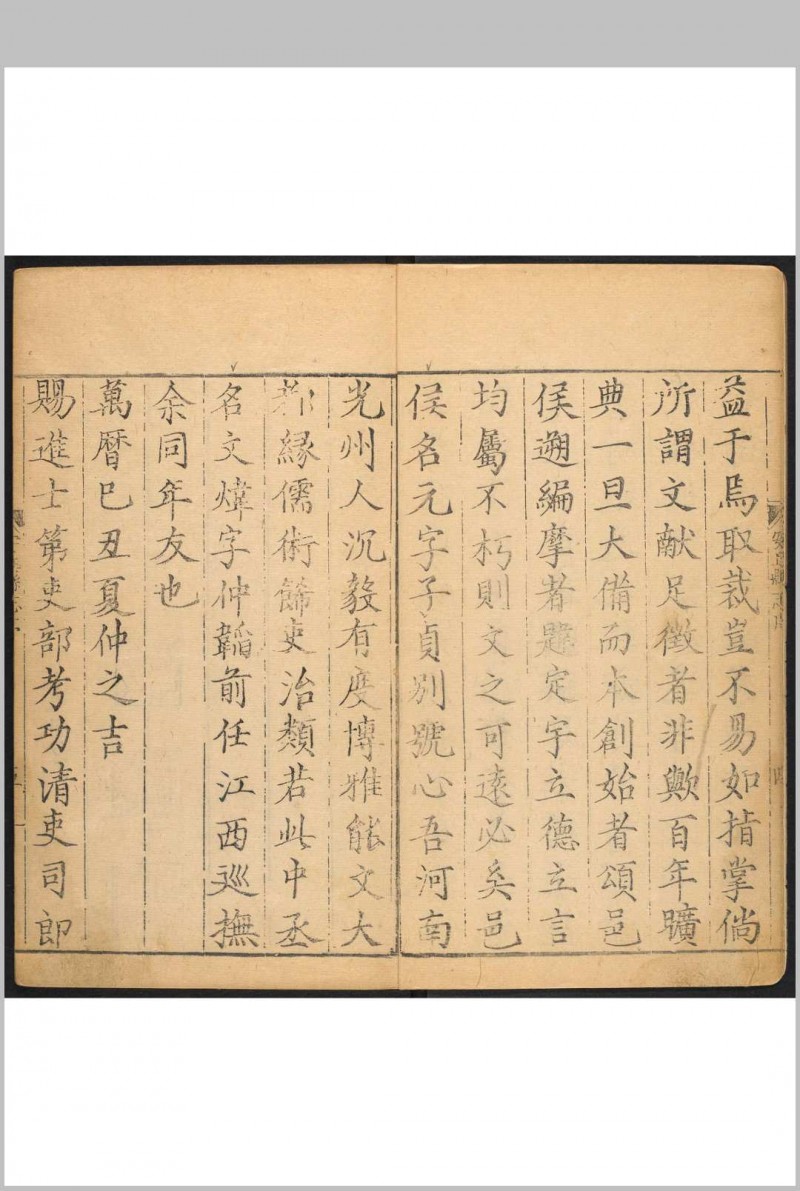 益于焉取裁豈不易如指掌倘
所謂文献足徵者非歟百年曠
典一旦大備而本創始者頌邑
侯遡編摩者韙定字立德立言
均屬不朽則文之可遠必矣邑
侯名元字子貞別號心吾河南
光州人沉毅有度博雅能文大
都緣儒術餙吏治類若此中丞
名文煒字仲韜前任江西巡撫
余同年友也
萬曆己丑夏仲之吉
賜進士第吏部考功清吏司郎